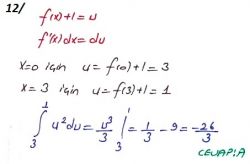 12/
f(x)+1=u
f'(x)dx=du
x=0 için u=f(0)+1=3
x=3 için u=f(3)+1=1
∫₃¹ u²du = u³/3 |₃¹ = 1/3 - 9 = -26/3
CEVAP:A